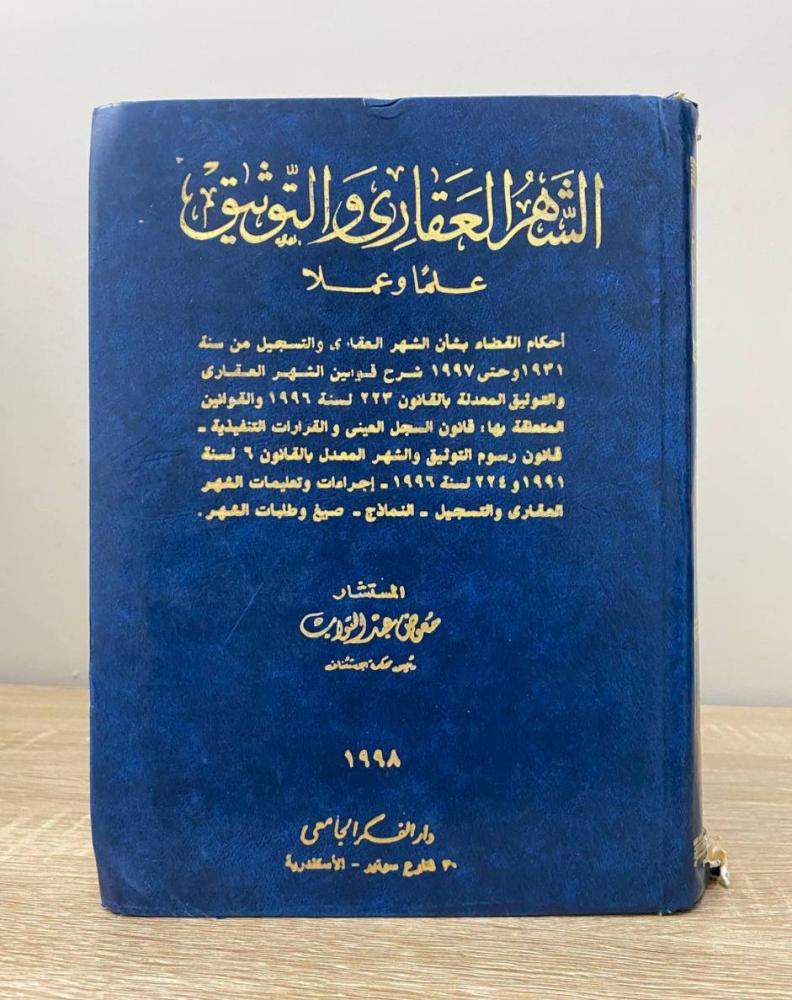 الشَّهر العَقارى والتَّوثيق
علمًا وعملا
أحكام القضاء بشأن الشهر العقارى والتسجيل من سنة
١٩٣١ وحتى ١٩٩٧ شرح قوانين الشهر العقارى
والتوثيق المعدلة بالقانون ٢٢٣ لسنة ١٩٩٦ والقوانين
المتعلقة بها: قانون السجل العينى والقرارات التنفيذية -
قانون رسوم التوثيق والشهر المعدل بالقانون ٦ لسنة
١٩٩١ و ٢٢٤ لسنة ١٩٩٦ - إجراءات وتعليمات الشهر
العقارى والتسجيل - النماذج - صيغ وطلبات الشهر.
المستشار
معوض عبد التواب
رئيس محكمة الاستئناف
١٩٩٨
دار الفكر الجامعى
٣٠ شارع سوتير - الأسكندرية